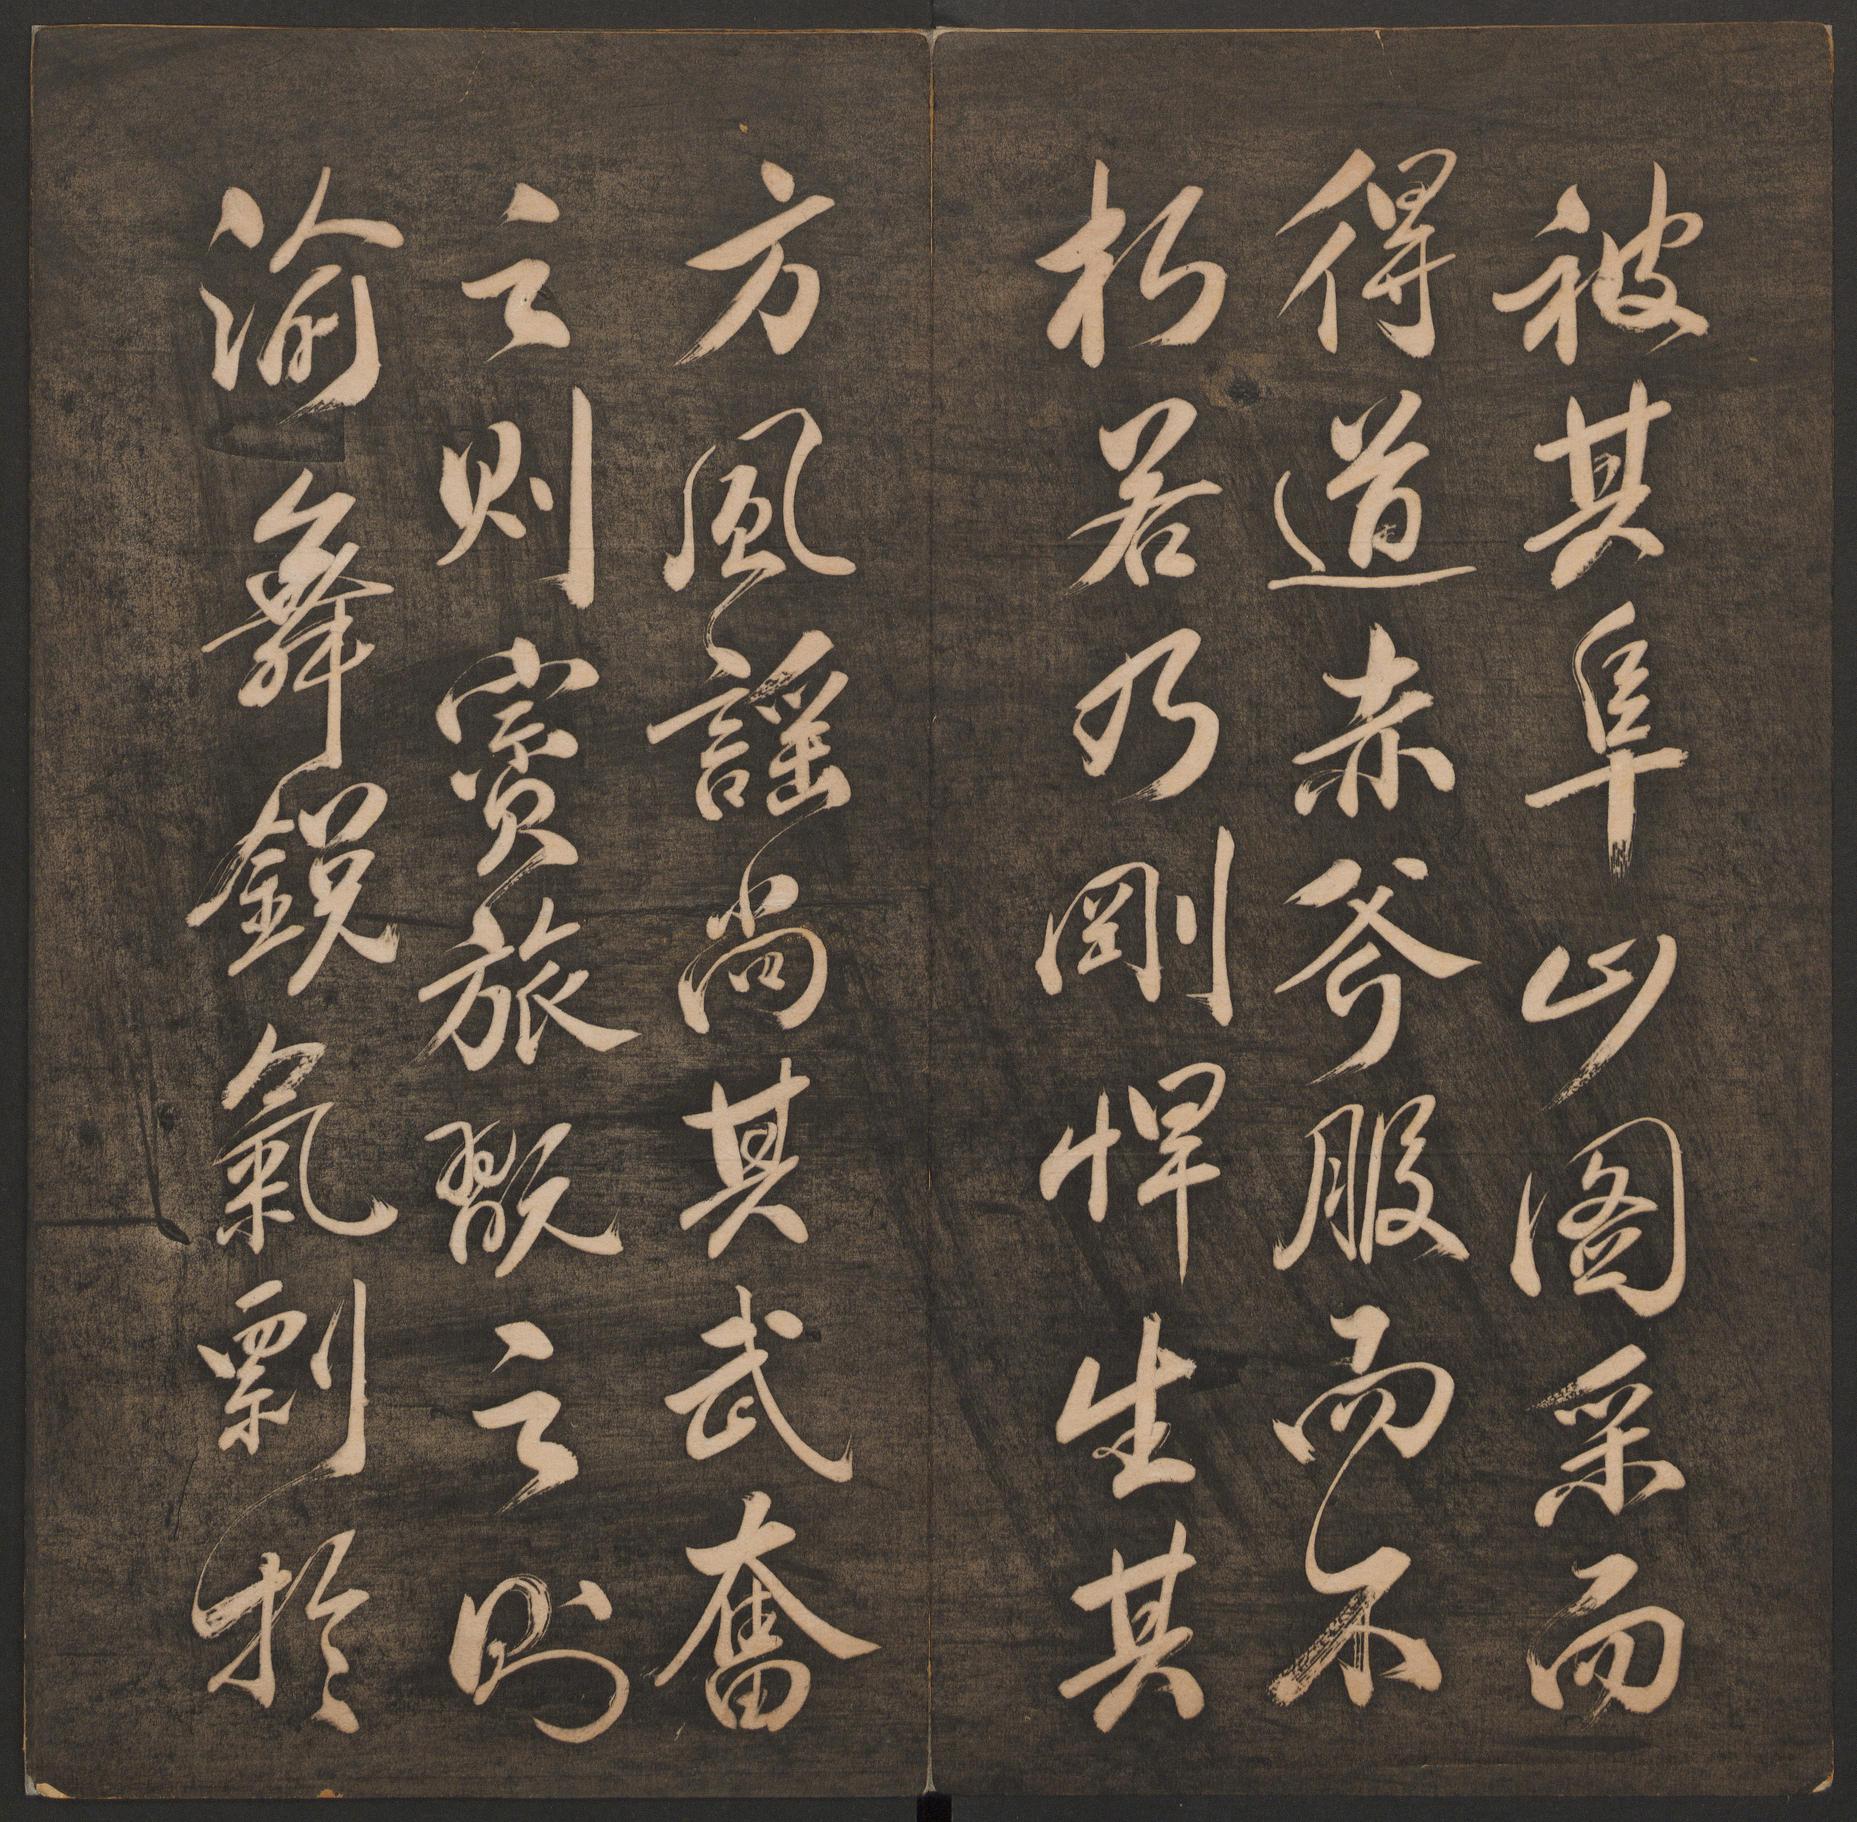 被其阜山圖采而
得道赤斧服而不
朽若乃剛悍生其
方風謠尚其武奮
之則賨旅翫之則
渝舞銳氣剽於